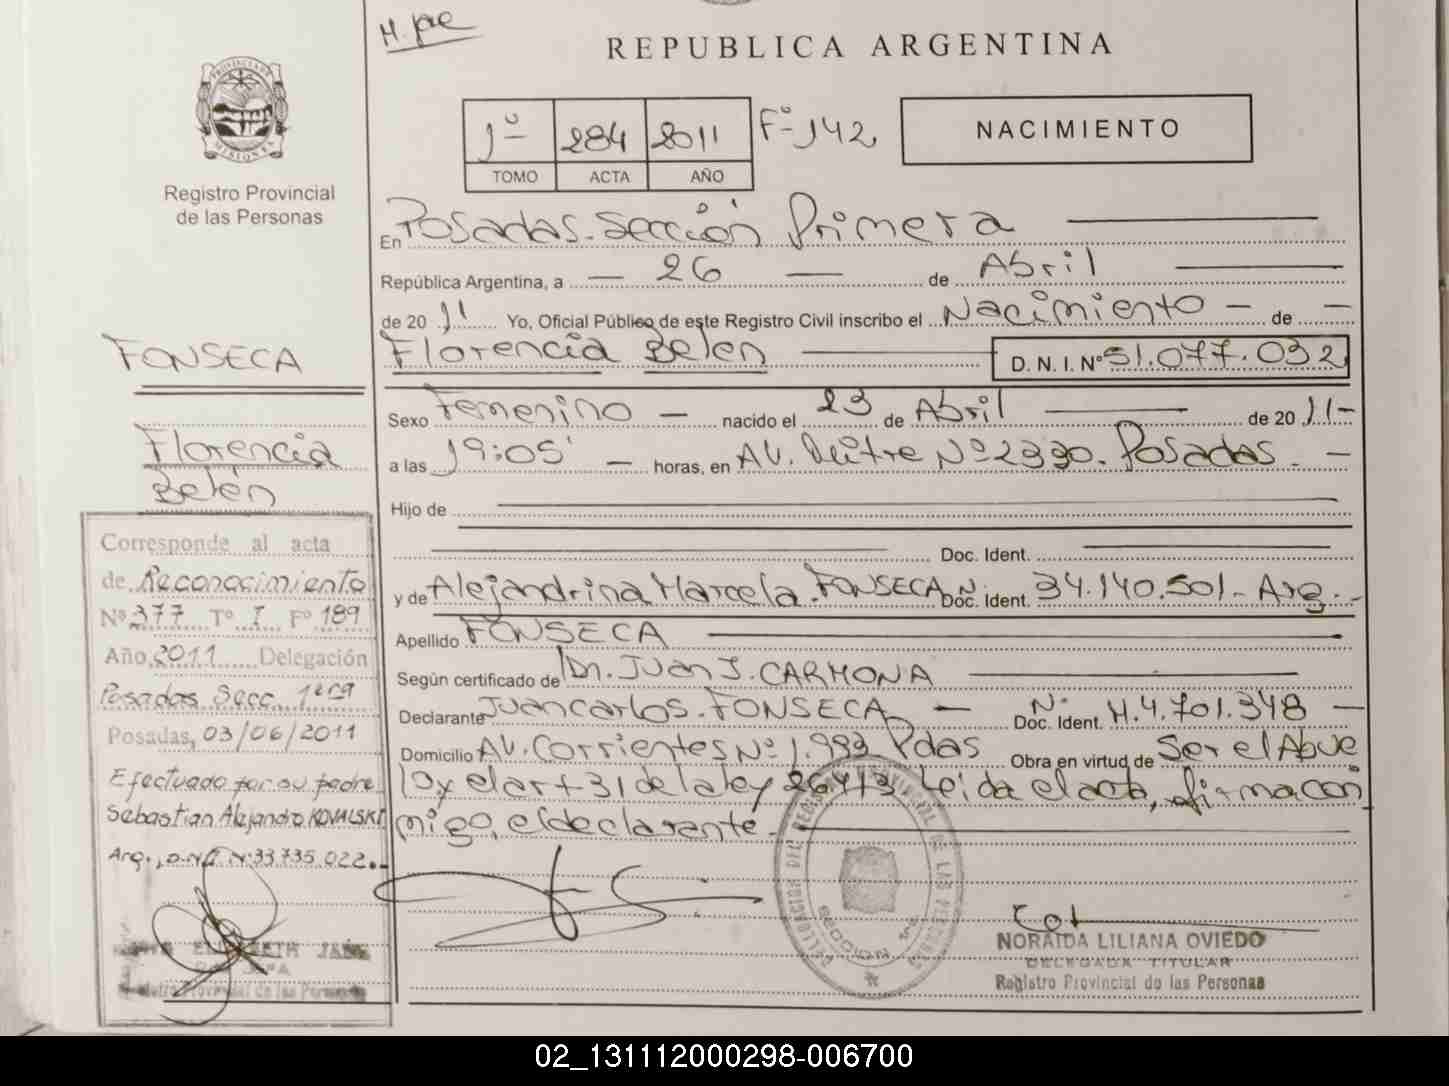 H. pre
REPUBLICA ARGENTINA
PROVINCIA DE
MISIONES
Registro Provincial
de las Personas
1º 284 2011 Fº 142
TOMO ACTA AÑO
NACIMIENTO
En Posadas. Sección Primera
República Argentina, a — 26 — de Abril
de 20 11 Yo, Oficial Público de este Registro Civil inscribo el Nacimiento — de —
Florencia Belén D. N. I. Nº 51.077.032
FONSECA
Florencia
Belén
Sexo Femenino — nacido el 23 de Abril de 20 11-
a las 19:05' — horas, en AV. Mitre Nº 2330. Posadas. —
Hijo de
Doc. Ident.
y de Alejandrina Marcela. FONSECA Doc. Ident. Nº 34.140.501- Arg.-
Apellido FONSECA
Según certificado de Dr. Juan J. CARMONA
Declarante Juan Carlos. FONSECA — Doc. Ident. Nº M.4.701.348 —
Domicilio AV. Corrientes Nº 1.983 Pdas Obra en virtud de Ser el Abue
lo y el art 31 de la ley 26413 Leida el acta, firma con
migo, el declarante.
Corresponde al acta
de Reconocimiento
Nº 377 Tº I Fº 189
Año 2011 Delegación
Posadas Secc. 1era
Posadas, 03/06/2011
Efectuado por su padre
Sebastian Alejandro KOVALSKI
Arg., D.N.I. Nº 33.735.022.-
ELIZABETH
Registro Provincial de las Personas
SECCION 1ª
NORAIDA LILIANA OVIEDO
DELEGADA TITULAR
Registro Provincial de las Personas
02_131112000298-006700